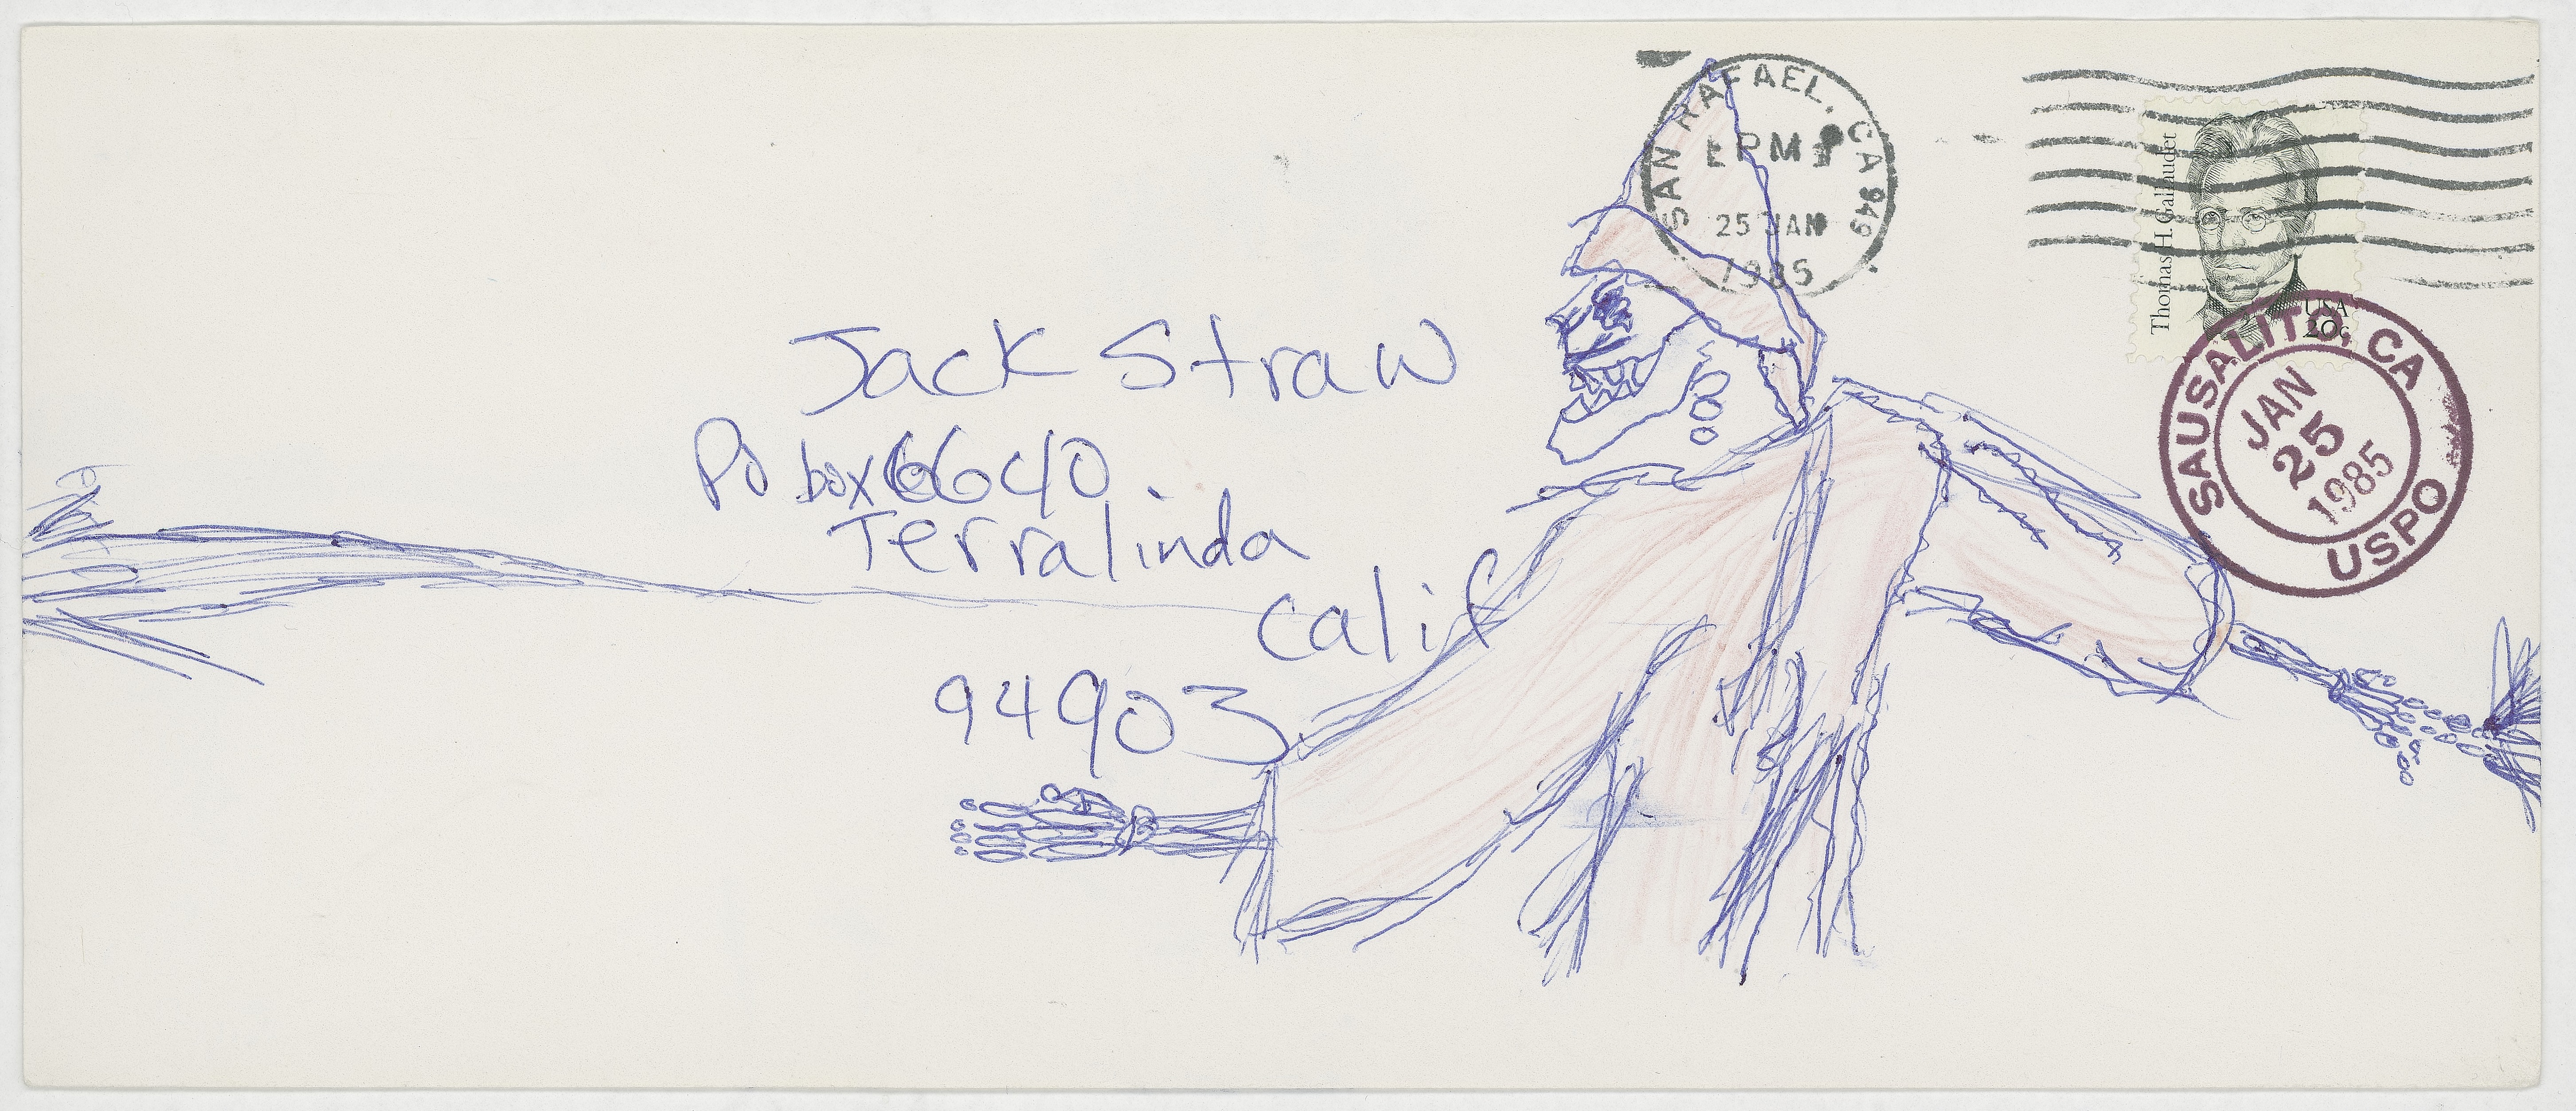 SAN RAFAEL, CA 949
PM
25 JAN
1985
Thomas H. Gallaudet
USA
20c
SAUSALITO, CA
JAN
25
1985
USPO
Jack Straw
Po box 6640
Terralinda
calif
94903